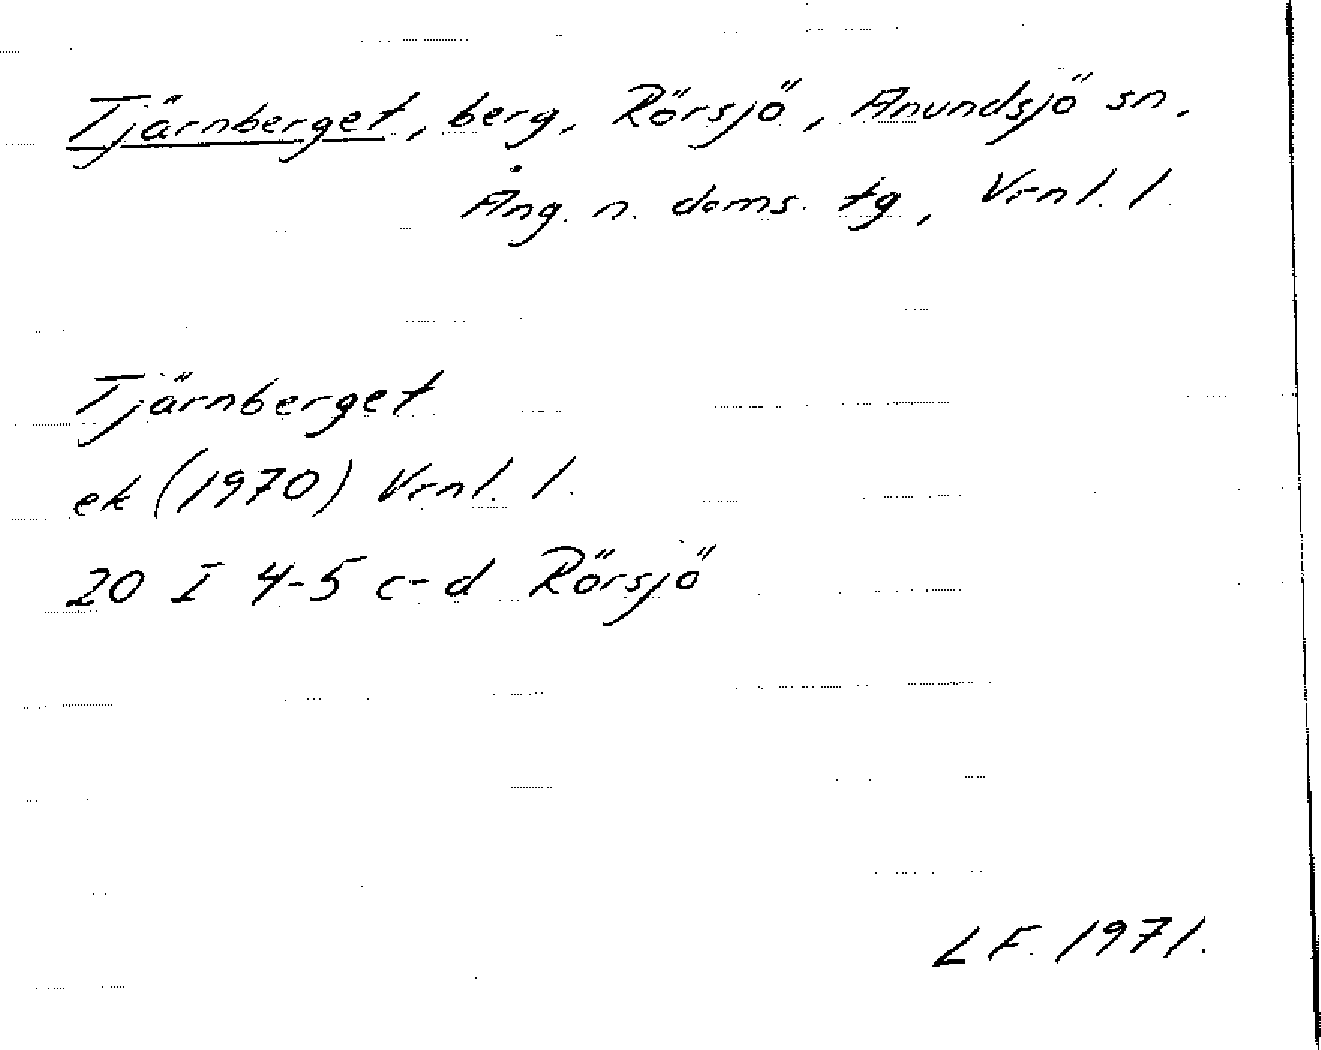 Tjärnberget, berg, Rörsjö, Anundsjö sn.
Ång. n. doms. tg, Vrnl. l.
Tjärnberget
ek (1970) Vrnl. l.
20 I 4-5 c-d Rörsjö
LF. 1971.